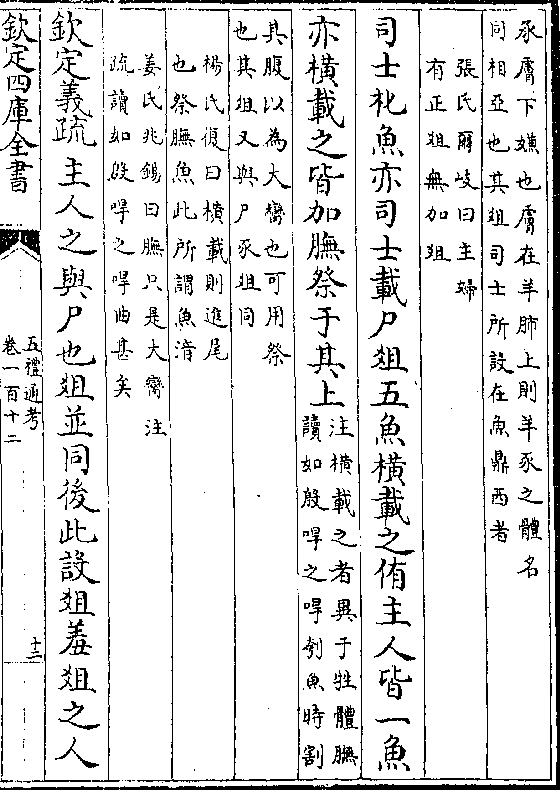 承膚下嫌也膚在羊肺上則羊豕之體名
同相亞也其俎司士所設在魚鼎西者
張氏爾岐曰主婦
有正俎無加俎
司士朼魚亦司士載尸俎五魚橫載之侑主人皆一魚
亦橫載之皆加膴祭于其上
注橫載之者異于牲體膴
讀如殷冔之冔刳魚時割
其腹以為大臠也可用祭
也其俎又與尸豕俎同
楊氏復曰橫載則進尾
也祭膴魚此所謂魚湆
姜氏兆錫曰膴只是大臠注
疏讀如殷冔之冔曲甚矣
欽定義疏主人之與尸也俎並同後此設俎羞俎之人
欽定四庫全書
五禮通考
卷一百十二
十二